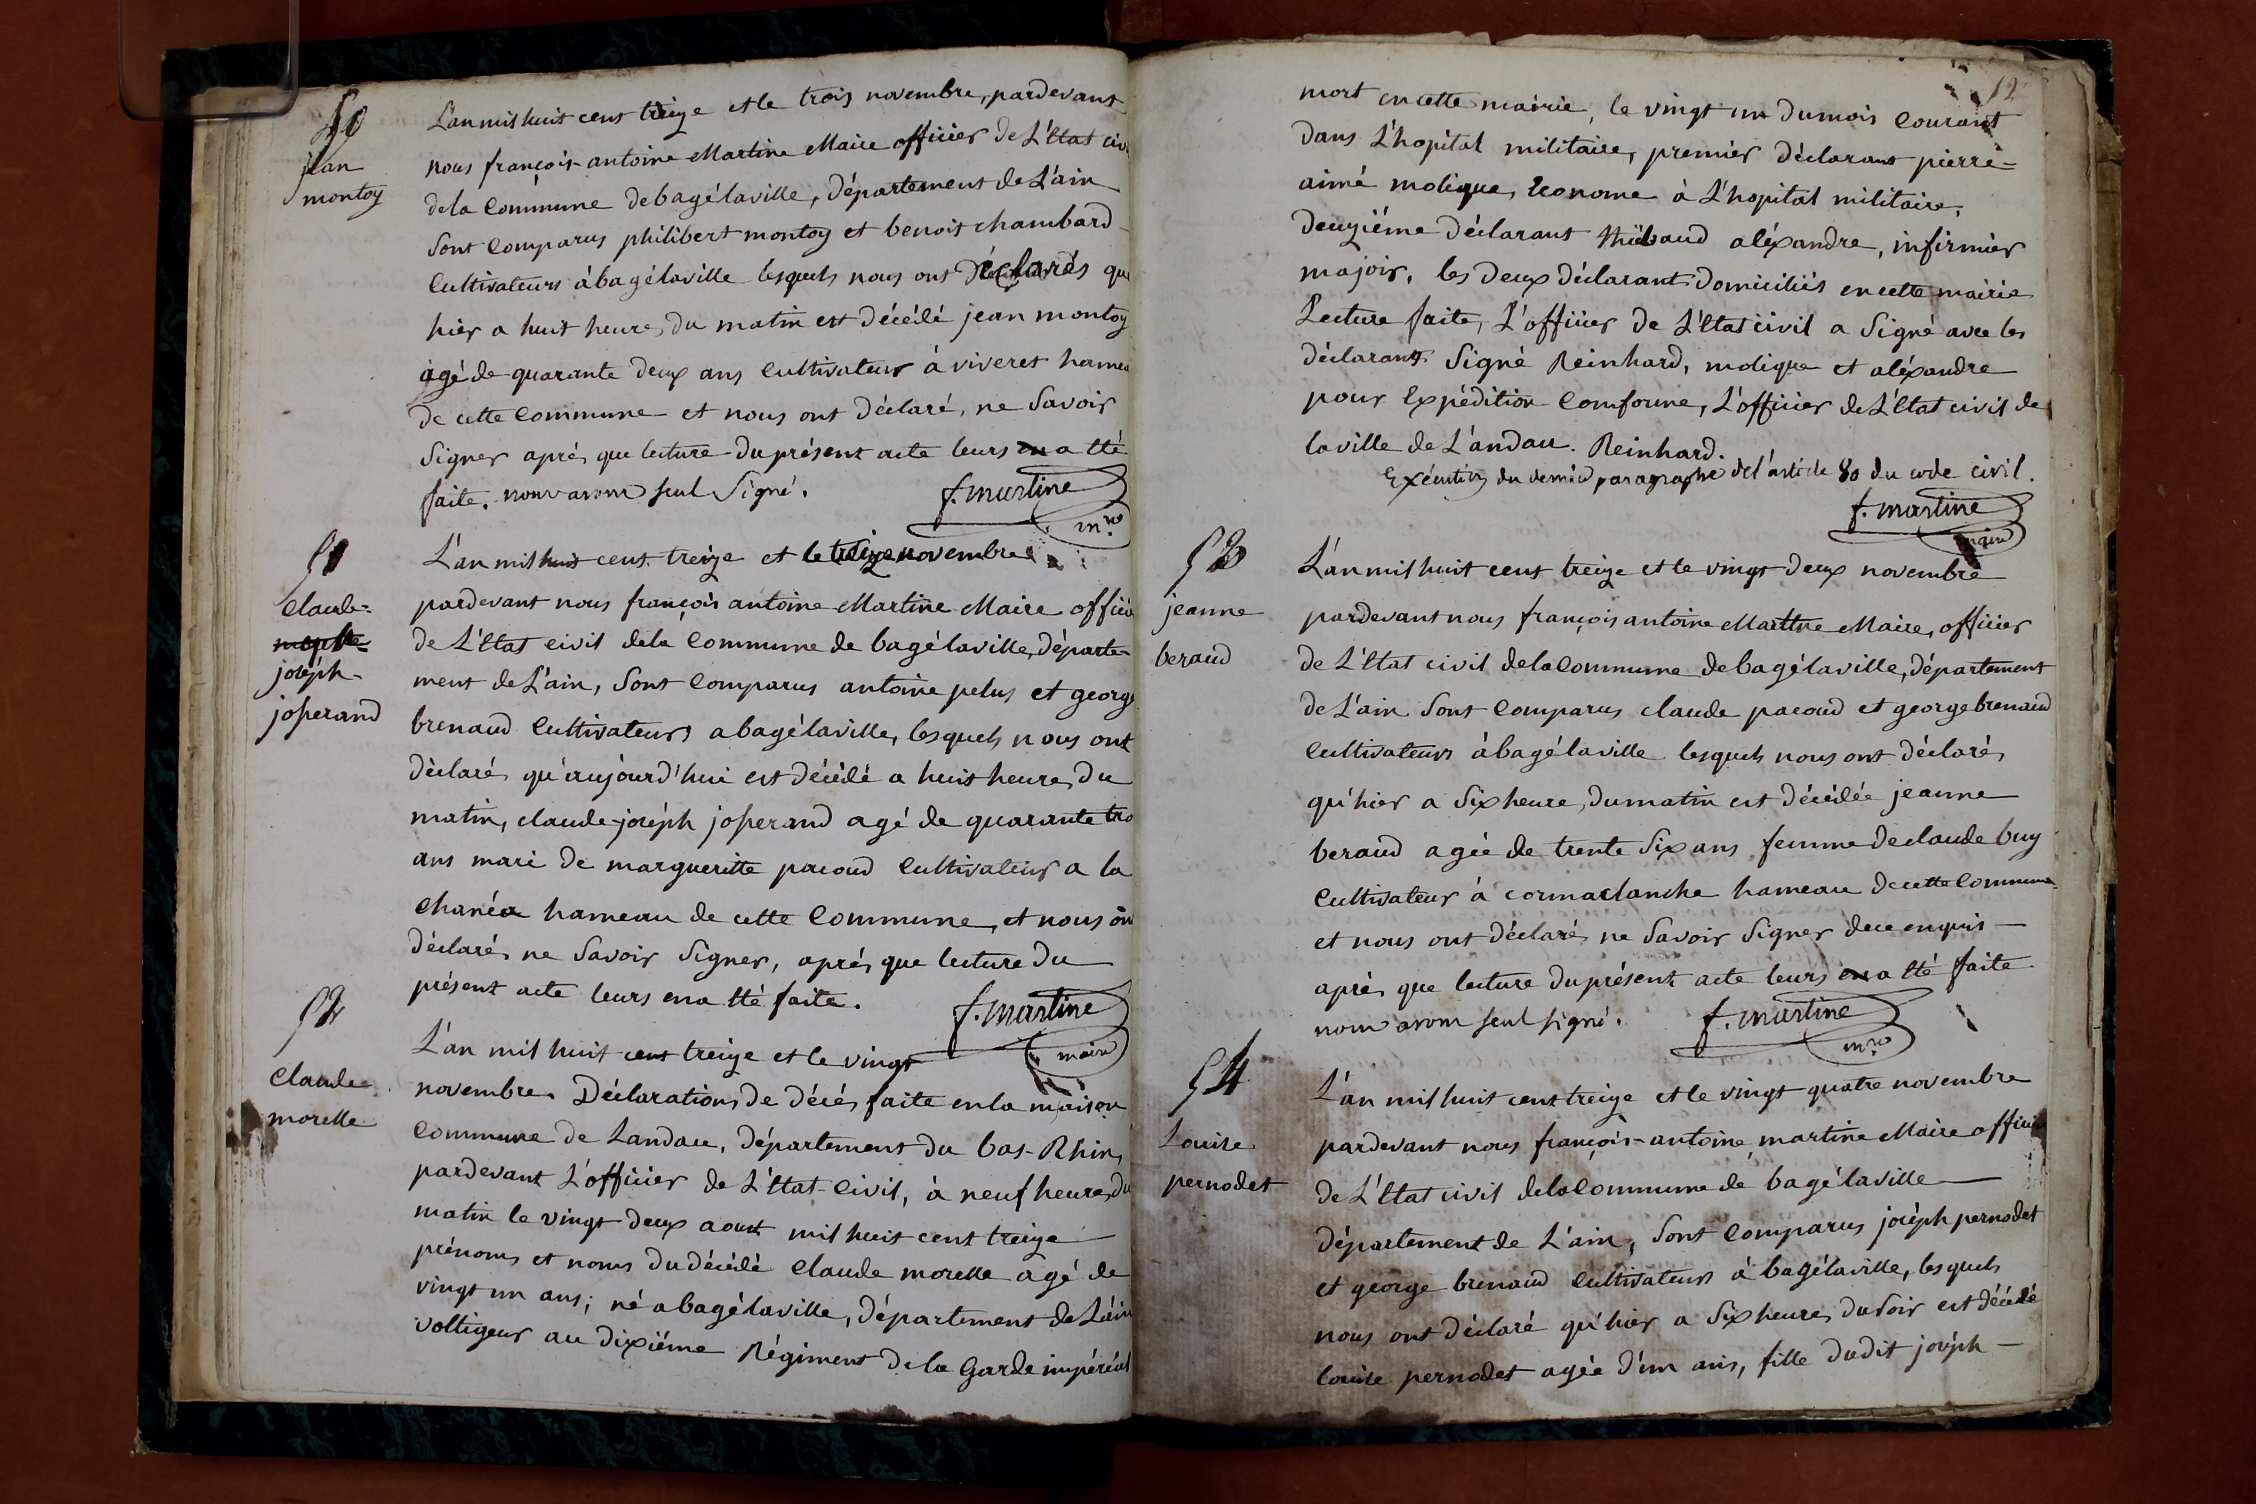 50
jean
montoy
L'an mil huit cent treize et le trois novembre, pardevant
nous françois antoine Martine Maire officier de L'Etat civ
de la Commune de bagélaville, Département de L'ain
Sont Comparus philibert montoy et benoit chambard
Cultivateurs à bagélaville lesquels nous ont Déclarés que
hier a huit heures du matin est décédé jean montoy
agé de quarante deux ans Cultivateur à viveret hamea
de cette Commune et nous ont Déclaré, ne Savoir
Signer après que lecture du présent acte leurs en a eté
faite. nous avons seul Signé.
f. martine
mre
51
Claude-
joséph-
josserand
L'an mil huit cent treize et le treize novembre
pardevant nous françois antoine Martine Maire officier
de L'Etat civil dela Commune de bagélaville, départe-
ment de L'ain, Sont Comparus antoine pelus et george
brenaud Cultivateurs a bagélaville, lesquels nous ont
déclarés qu'aujourd'hui est décédé a huit heures Du
matin, claude-joséph josserand agé de quarante tro
ans mari de margueritte pacoud Cultivateur a la
chanéa hameau de cette Commune, et nous on
déclarés ne Savoir Signer, après que lecture Du
présent acte leurs en a eté faite.
f. martine
maire
52
Claude
morelle
L'an mil huit cent treize et le vingt
novembre. Déclaration De décés faite en la maison
Commune de Landau, département du bas-Rhin,
pardevant L'officier de L'Etat-Civil, à neuf heures du
matin le vingt deux aoust mil huit cent treize
prénoms et noms Du décédé Claude morelle agé de
vingt un ans; né a bagélaville, Département de L'ain
voltigeur au dixiéme Régiment De la Garde impérial
12
mort en cette mairie, le vingt un Du mois Courant
dans L'hopital militaire, premier déclarant pierre-
aimé molique, Econome à L'hopital militaire,
Deuxiéme Déclarant thiébaud aléxandre, infirmier
majoir, les Deux déclarant Domiciliés en cette mairie
Lecture faite, L'officier de L'Etat civil a Signé avec les
déclarants Signé Reinhard, molique et aléxandre
pour Expédition Comforme, L'officier de L'Etat civil de
la ville de Landau. Reinhard.
Exécution du dernier paragraphe de l'article 80 du code civil.
f. martine
maire
53
jeanne
beraud
L'an mil huit cent treize et le vingt Deux novembre
pardevant nous françois antoine Martine Maire, officier
de L'Etat civil de la Commune de bagélaville, Département
de L'ain Sont Comparus claude pacoud et george brenaud
Cultivateurs à bagélaville lesquels nous ont déclarés
qu'hier a Six heures du matin est décédée jeanne
beraud agée de trente Six ans femme de claude buy
Cultivateur à cormaclanche hameau de cette Commune
et nous ont déclarés ne Savoir Signer de ce enquis
après que lecture du présent acte leurs en a eté faite
nous avons seul signé.
f. martine
mre
54
Louise
pernodet
L'an mil huit cent treize et le vingt quatre novembre
pardevant nous françois-antoine martine Maire officier
de L'Etat civil de la Commune de bagélaville
département de L'ain, Sont Comparus joséph pernodet
et george brenaud Cultivateurs à bagélaville, lesquels
nous ont Déclaré qu'hier a Six heures Du Soir est décédé
louise pernodet agée D'un ans, fille Dudit joséph